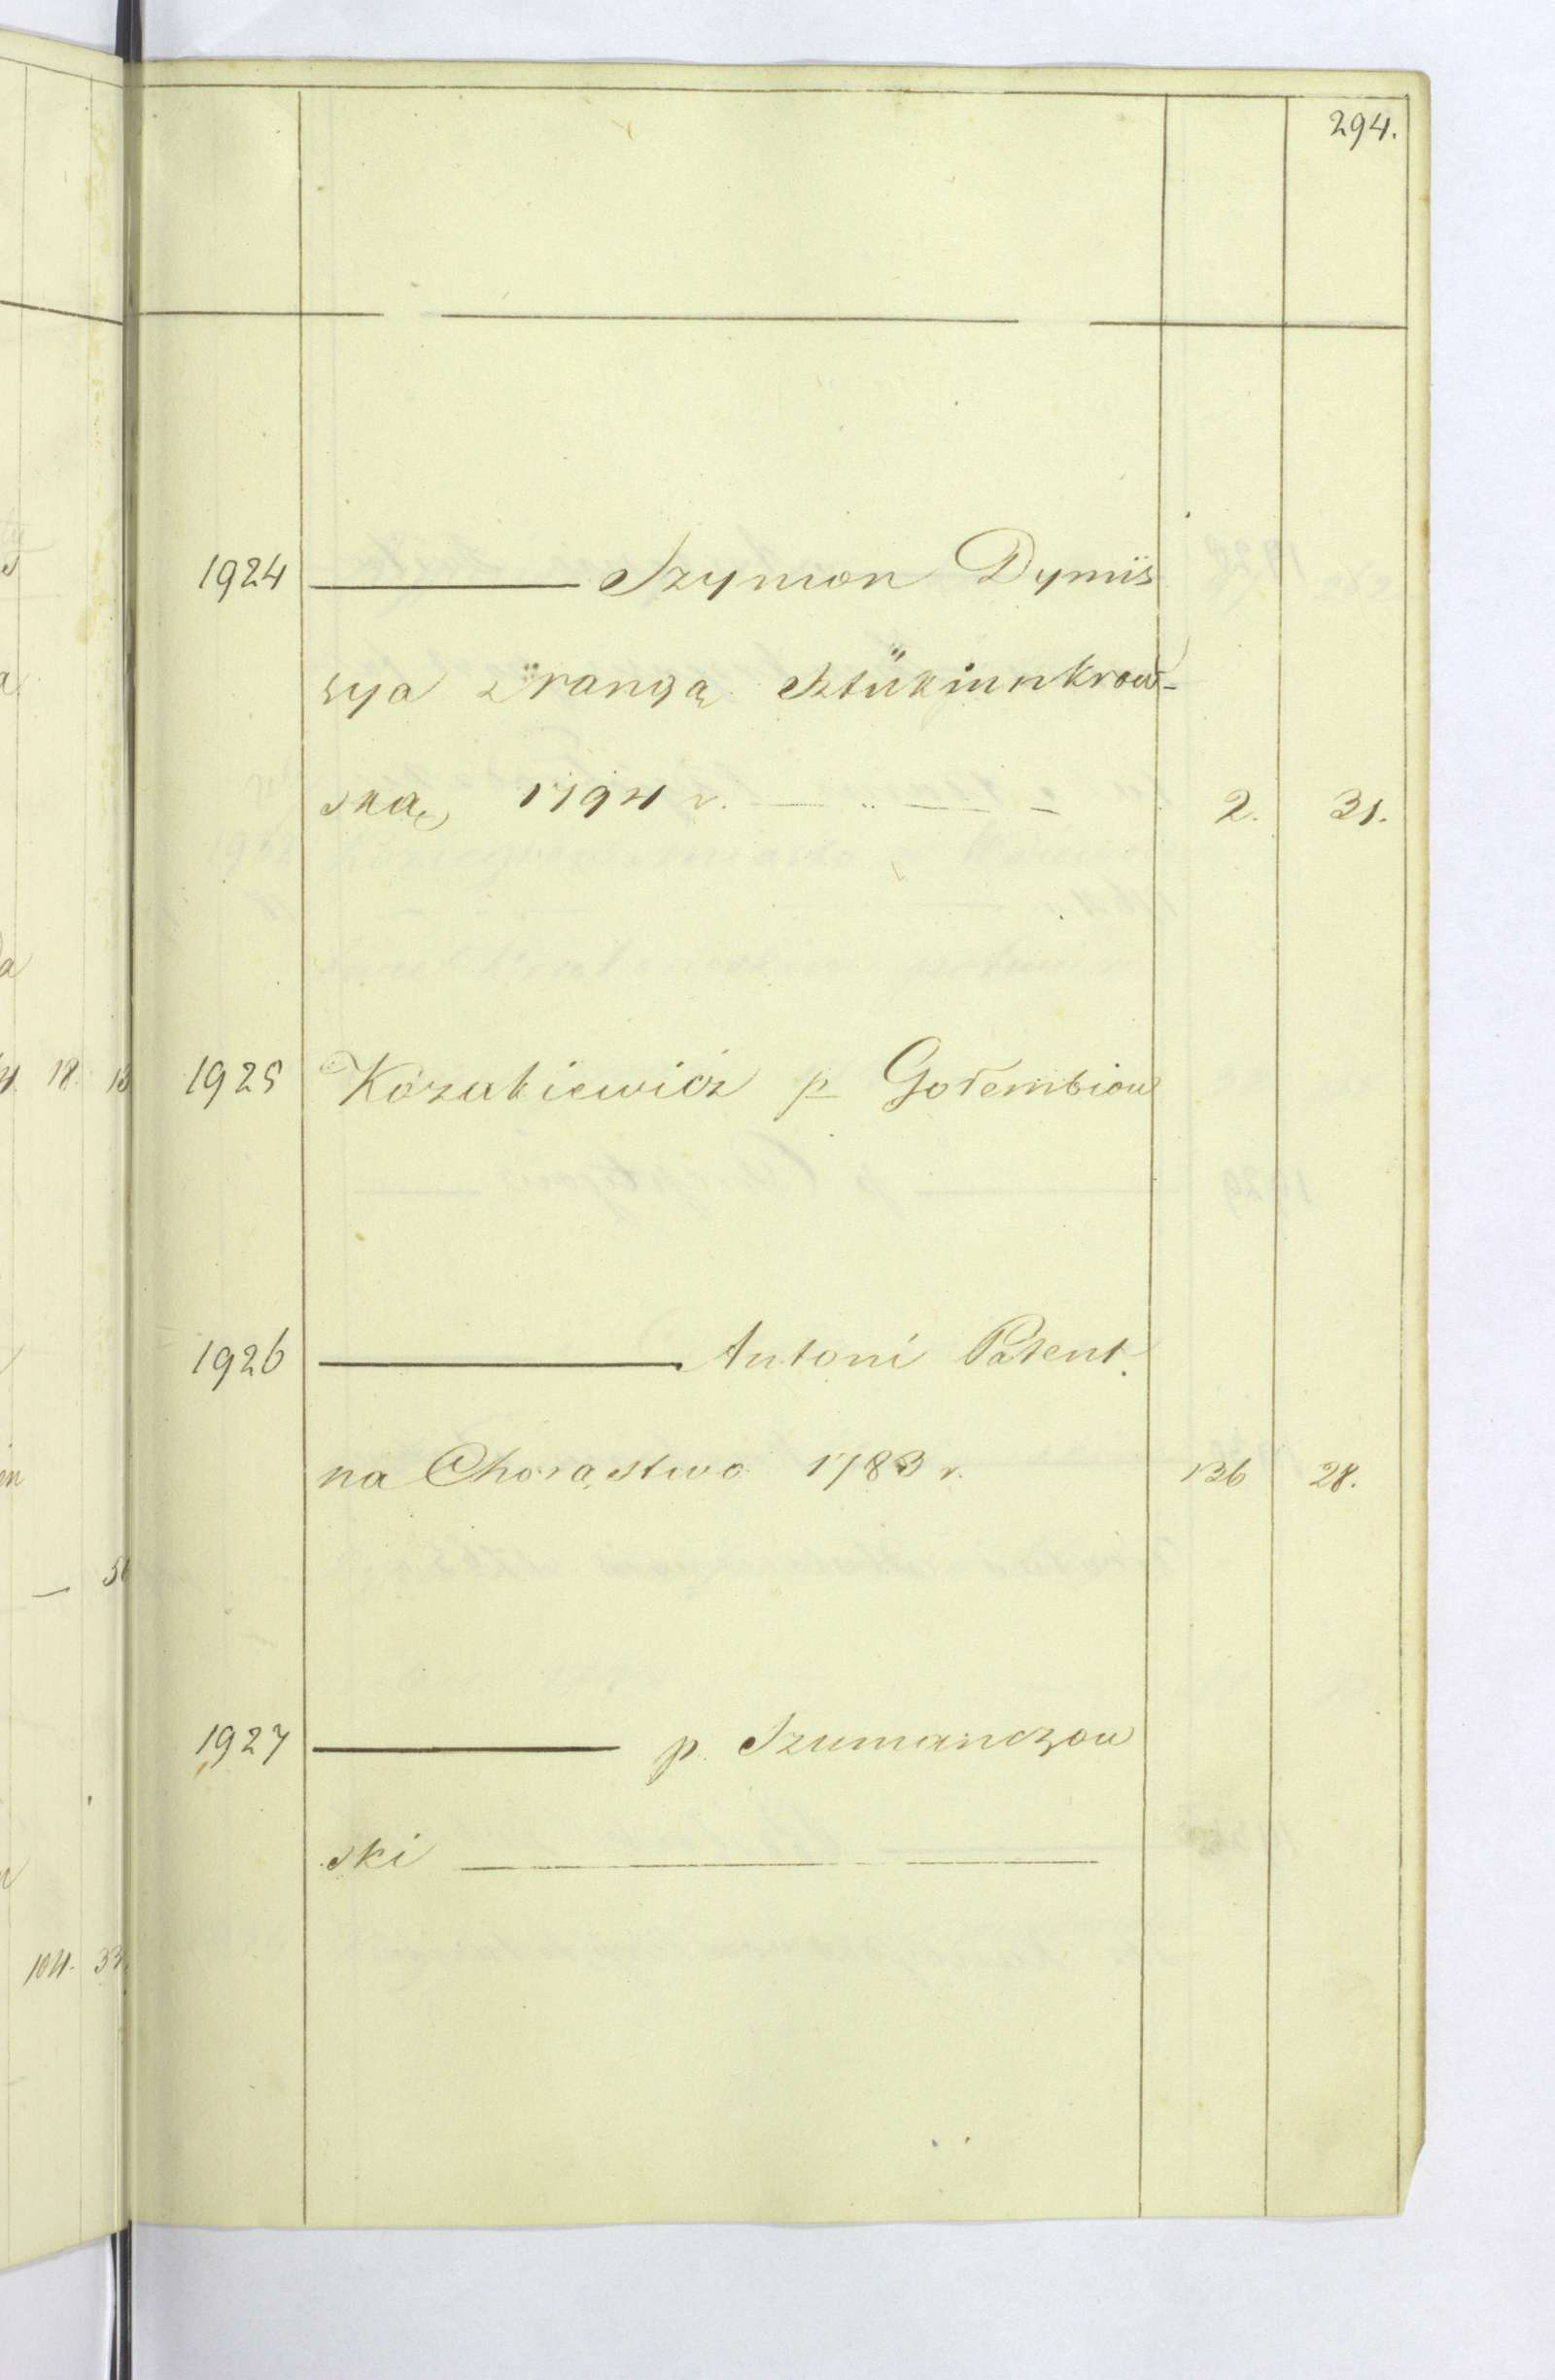 294.
1924 ——— Szymon Dymis
sya z rangą Sztükiunkrow-
ską 1794 r. — — — 2. 31.
1925 Kozakiewicz p Gołembiow
1926 ——— Antoni Patent.
na Chorąstwo 1783 r. 136 28.
1927 ——— p. Szumanczow
ski ———